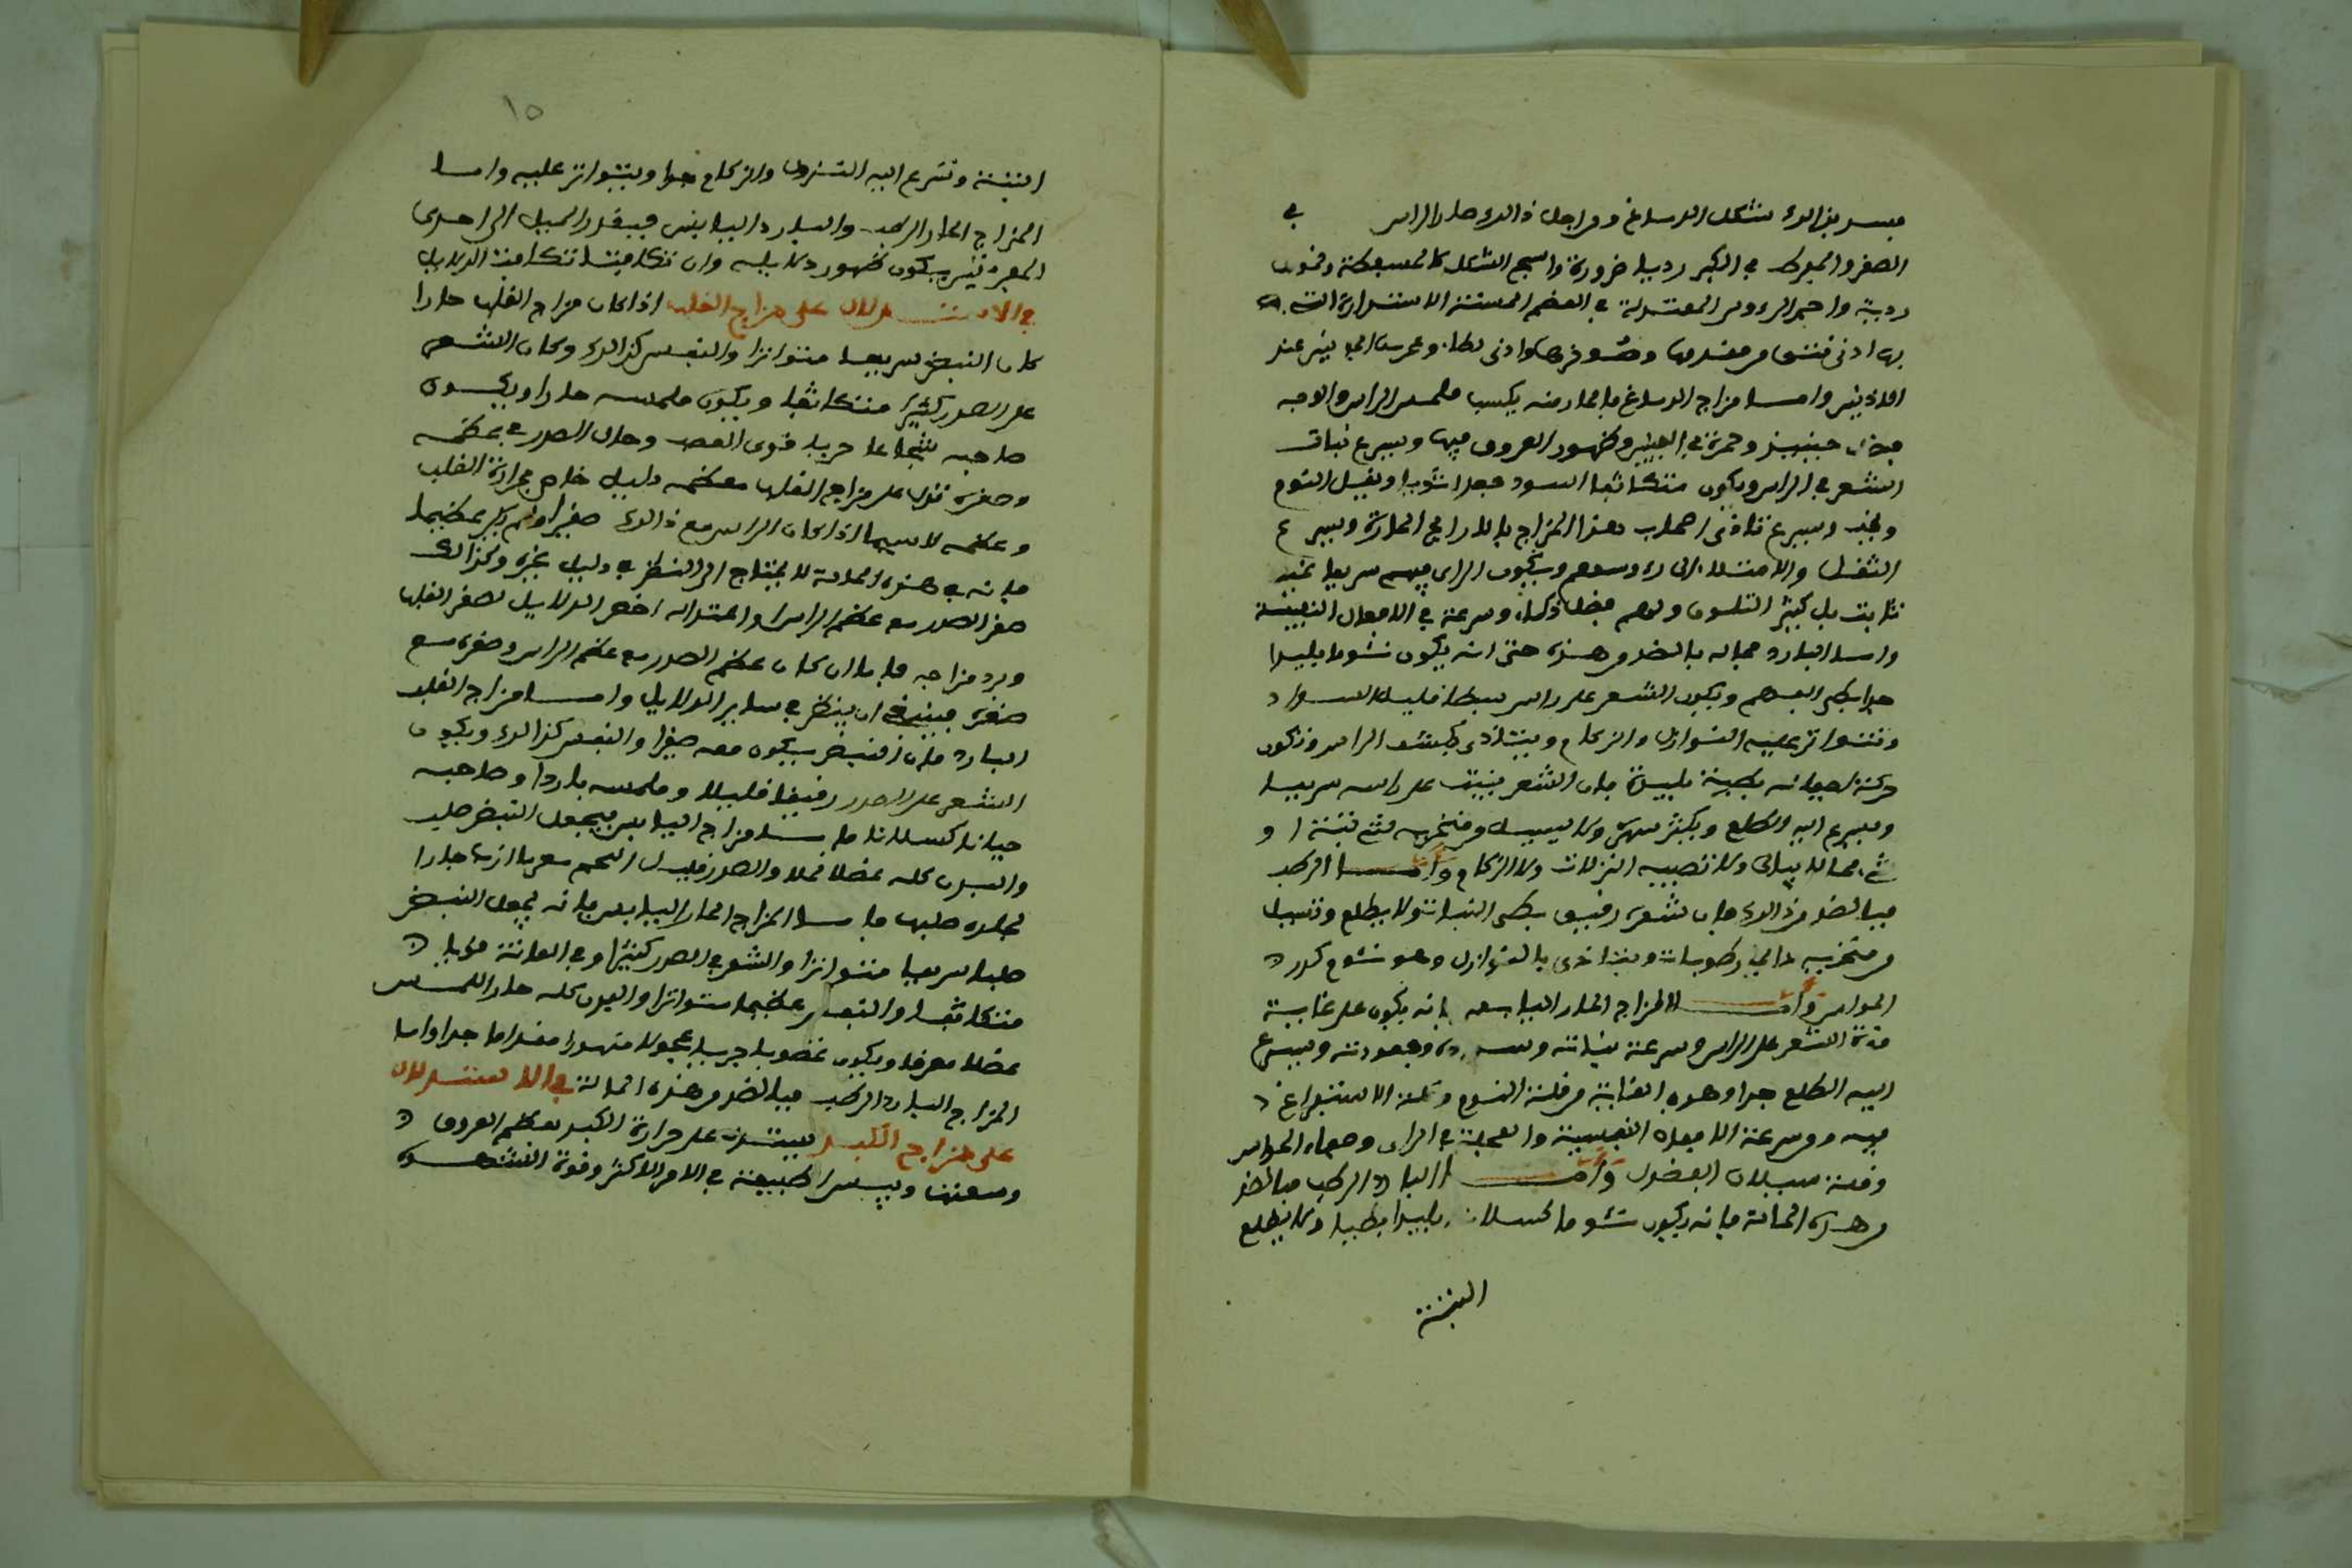 فيسد بذالك شكل الدماغ ومن اجل ذالك صار الراس في
الصغر والمفرط في الكبر رديا ضرورة واسمج الشكل كالمسفطة وقنون
ردية واحمد الروس المعتدلة في العظم المستنة الاستدارة التي
بها ادنى نتى من مقدمها وموخرها وادنى لطا وعرس الجانبين عند
الاذنين واما مزاج الدماغ فالحار منه يكسب ملمس الراس والوجه
فضل حينيذ وحمرة في العينين وظهور العروق فيها ويسرع نبات
الشعر في الراس ويكون متكاثفا اسود جعدا شديدا ويقيل النوم
ويخف ويسرع تاذى اصحاب هذا المزاج بالاراييح الحارة ويسرع
الثقل والامتلاء الى روسهم ويكون الراى فيهم سريعا غير
ثابت بل كثير التلون ولهم فضل ذكاء وسرعة في الافعال النفسية
واما البارد فحاله بالضد من هذه حتى انه يكون نئوما بليدا
جدا بطي الفهم ويكون الشعر على راس سبطا قليل السواد
وتتواتر عليه النوازل والزكام ويتاذى بكشف الراس وتكون
حركة اجفانه بطيئة بليدة فان الشعر ينبت على راسه سريعا
ويسرع اليه الصلع ويكثر سهره ولا يسيل من منخريه شى نتنة او
شى فحاله يبالى ولا تصيبه النزلات ولا الزكام واما الرطب
فبالضد من ذالك فان شعره رقيق بطى النبات ولا يصلع وتسيل
من منخريه دايما رطوبات ويتاذى بالنوازل وهو نئوم كدر
الحواس واما المزاج الحار اليابس فانه يكون على غاية
قوة الشعر على الراس وسرعة نباته وسواده وجعودته ويسرع
اليه الصلع جدا وهو في الغاية من قلة النوم وقلة الاستفراغ
فيه ومن سرعة الافعال النفسية والعجلة في الراى وصفاء الحواس
وقلة سيلان الفضول واما البارد الرطب فبالضد
من هذه الحالة فانه يكون نئوما كسلانا بليدا بطيا ولا يصلع
البتة
١٥
البتة وتسرع اليه النزول والزكام جدا ويتواتر عليه واما
المزاج الحار الرطب والبارد اليابس فبقدر الميل الى احدى
المفردتين يكون ظهور دلايله وان تكافيتا تكافت الدلايل
في الاستدلال على مزاج القلب اذا كان مزاج القلب حارا
كان النبض سريعا متواترا والنفس كذالك وكان الشعر
على الصدر كثيرا متكاثفا ويكون ملمسه حارا ويكون
صاحبه شجاعا جريا قوى الغضب وحال الصدر في عظمه
وصغره تدل على مزاج القلب فعظمه دليل خاص بحرارة القلب
وعظمه لاسيما اذا كان الراس مع ذالك صغيرا ولم يكن عظيما
فانه في هذه الحالة لا يحتاج الى النظر في دليل غيره وكذالك
صغر الصدر مع عظم الراس واعتداله اخص الدلايل لصغر القلب
وبرد مزاجه فاما ان كان عظم الصدر مع عظم الراس وصغره مع
صغره فينبغى ان ينظر في ساير الدلايل واما مزاج القلب
البارد فان النبض يكون معه صغيرا والنفس كذالك ويكون
الشعر على الصدر رقيقا قليلا وملمسه باردا وصاحبه
جبانا كسلانا فاما مزاج اليابس فيجعل النبض صلبا
والبدن كله عضلا قحلا والصدر قليل اللحم معرما ازب جاردا
لجلده صلبها فاما المزاج الحار اليابس فانه يجعل النبض
صلبا سريعا متواترا والشعر في الصدر كثيرا وفي العانة قويا
متكاثفا والنفس عظيما متواترا والبدن كله حار الملمس
عضلا معرقا ويكون غضوبا جريا عجولا متهورا مقداما جدا واما
المزاج البارد الرطب فبالضد من هذه الحالة في الاستدلال
على مزاج الكبد يستدل على حرارة الكبد بعظم العروق
وسعتها ويبس الطبيعة في الامر الاكثر وقوة الشهوة